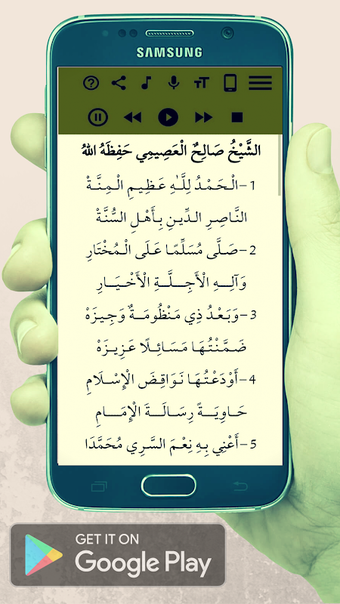 SAMSUNG
الشَّيْخُ صَالِحٌ الْعَصِيمِي حَفِظَهُ اللهُ
1 – الْحَمْدُ لِلَّهِ عَظِيمِ الْمِنَّةْ
النَّاصِرِ الدِّينِ بِأَهْلِ السُّنَّةْ
2 – صَلَّى مُسَلِّمًا عَلَى الْمُخْتَارِ
وَآلِهِ الْأَجِلَّةِ الْأَخْيَارِ
3 – وَبَعْدُ ذِي مَنْظُومَةٌ وَجِيزَهْ
ضَمَّنْتُهَا مَسَائِلًا عَزِيزَهْ
4 – أَوْدَعْتُهَا نَوَاقِضَ الْإِسْلَامِ
حَاوِيَةً رِسَالَةَ الْإِمَامِ
5 – أَعْنِي بِهِ نِعْمَ السَّرِي مُحَمَّدَا
GET IT ON
Google Play